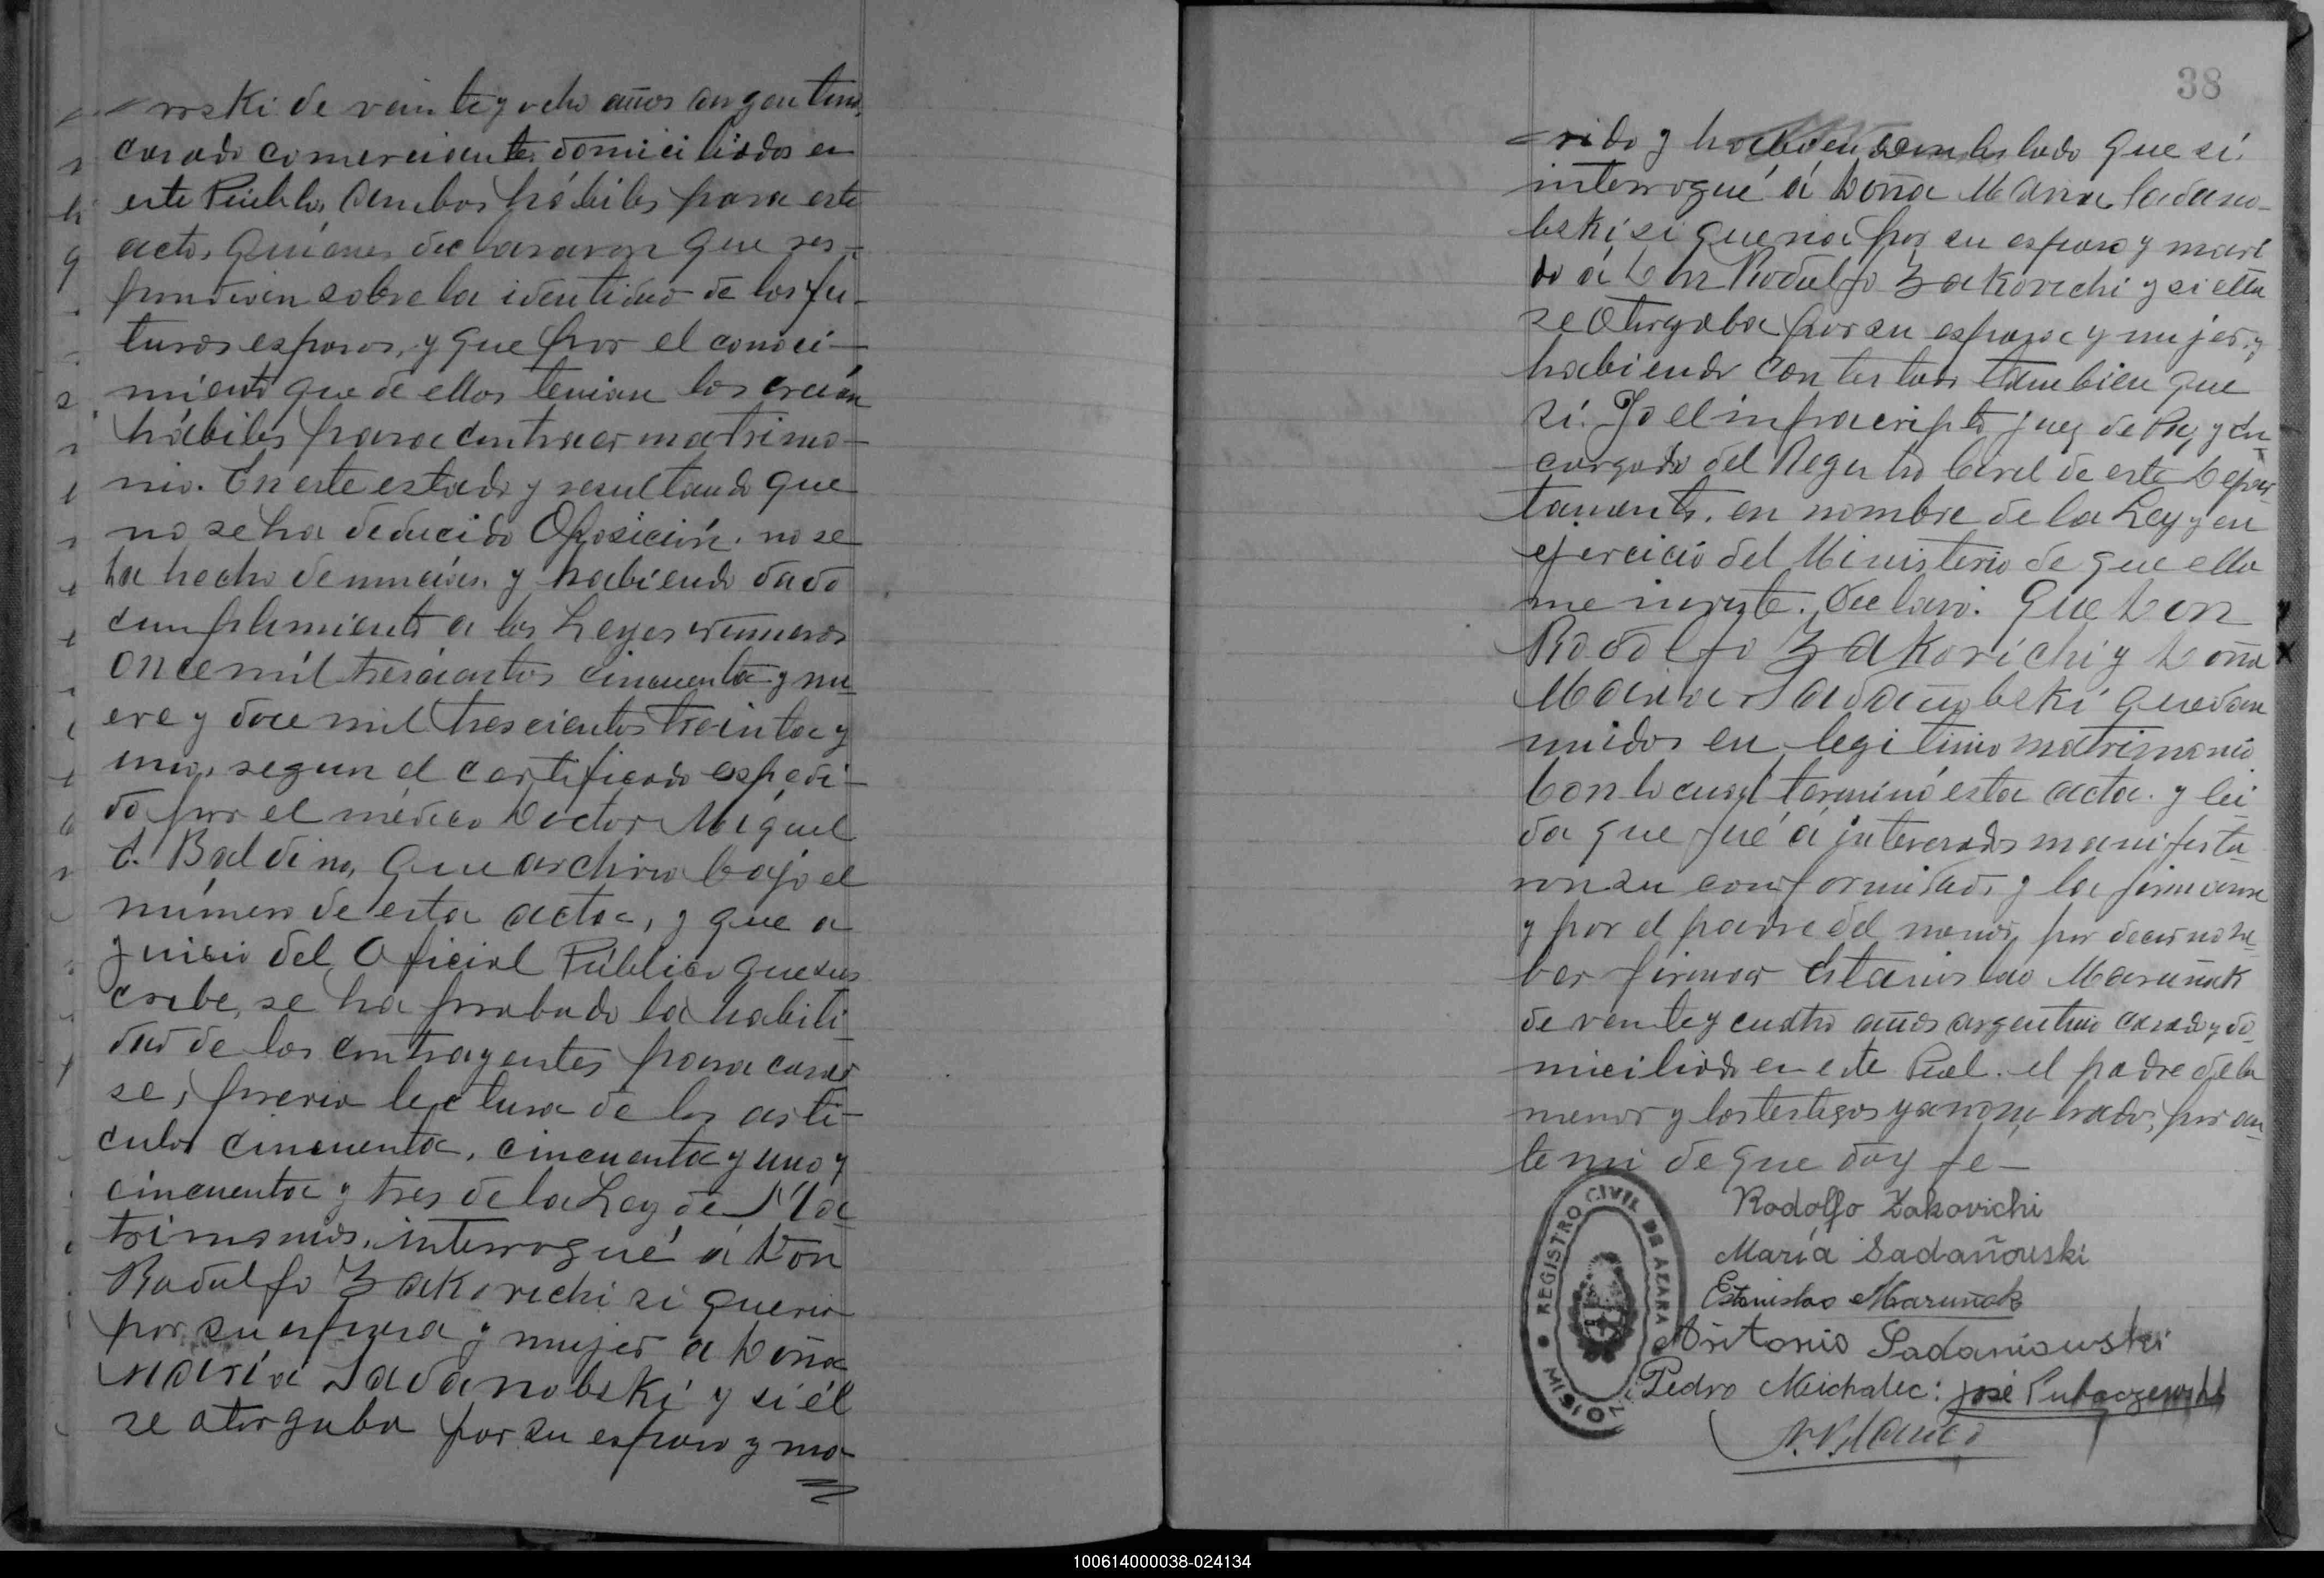 wski de veinte y ocho años argentino,
casado comerciante domiciliados en
este Pueblo, ambos hábiles para este
acto, quienes declararon que res-
pondian sobre la identidad de los fu-
turos esposos, y que por el conoci-
miento que de ellos tenian los creian
hábiles para contraer matrimo-
nio. En este estado y resultando que
no se ha deducido Oposición, no se
ha hecho denuncias, y habiendo dado
cumplimiento a las Leyes números
once mil trescientos cincuenta y nu-
eve y doce mil trescientos treinta y
uno, segun el certificado espedi-
do por el médico Doctor Miguel
C. Baldino, que archivo bajo el
número de esta acta, y que a
juicio del Oficial Público que sus
cribe, se ha probado la habili-
dad de los contrayentes para casar
se, previa lectura de los arti-
culos cincuenta, cincuenta y uno y
cincuenta y tres de la Ley de Ma-
trimonios, interrogué á Don
Rodulfo Zakovichi si queria
por su esposa y mujer a Doña
María Sadanobski y si él
se otorgaba por su esposo y ma-
38
rido y habiendo contestado que sí.
interrogué á Doña Maria Sadano-
bski si queria por su esposo y mari
do á Don Rodulfo Zakovichi y si ella
se otorgaba por su esposa y mujer, y
habiendo contestado tambien que
sí. Yo el infracripto juez de Paz y En
cargado del Registro Civil de este Depar-
tamento, en nombre de la Ley y en
ejercicio del Ministerio de que ella
me inviste. Declaro. Que Don
Rodolfo Zakovichi y Doña
Maria Sadañobski quedan
unidos en legitimo matrimonio
Con lo cual terminó esta acta. y lei
da que fué á interesados manifesta-
ron su conformidad, y la firmaron
y por el padre del menor por decir no sa-
ber firmar Estanislao Maruñak
de veinte y cuatro años argentino casado y do-
miciliado en este Pueb. el padre de la
menor y los testigos ya nombrados, por an-
te mi de que doy fe-
REGISTRO CIVIL DE AZARA
MISIONES
Rodolfo Zakovichi
María Sadañouski
Estanislao Maruñak
Antonio Sadaniowski
Pedro Michalec: José
100614000038-024134